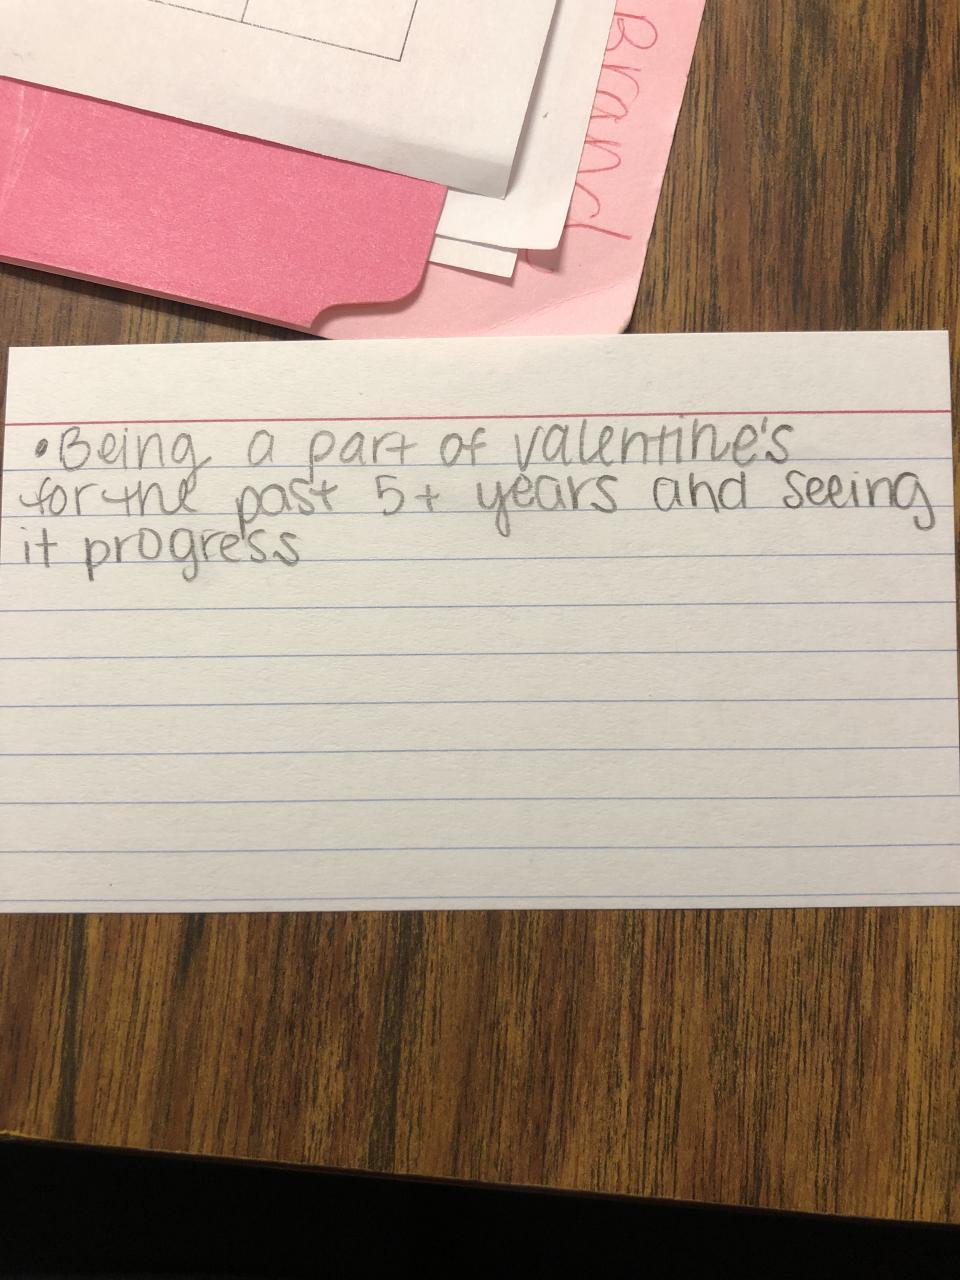 Brand
•Being a part of valentine's
for the past 5+ years and seeing
it progress